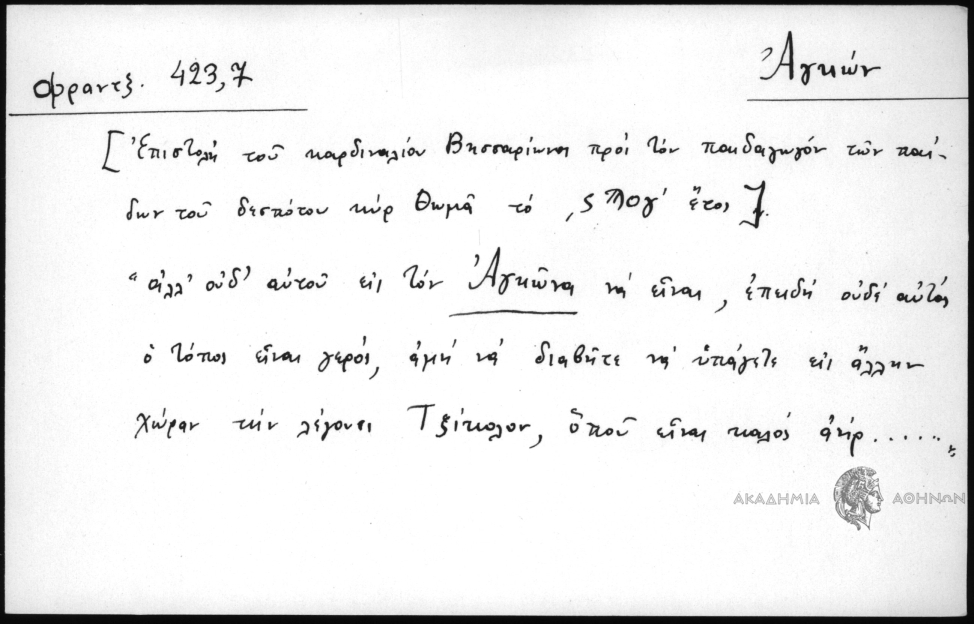 Φραντζ. 423,7
Ἀγκών
[Ἐπιστολὴ τοῦ καρδιναλίου Βησσαρίωνος πρὸς τὸν παιδαγωγόν τῶν παί-
δων τοῦ δεσπότου κύρ Θωμᾶ τὸ ,ςϠογ' ἔτος].
"ἀλλ' οὐδ' αὐτοῦ εἰς τὸν Ἀγκῶνα νά εἶναι, ἐπειδή οὐδέ αὐτός
ὁ τόπος εἶναι γερός, ἀμή νά διαβῆτε νά ὑπάγετε εἰς ἄλλην
χώραν τήν λέγουσι Τζίκολον, ὅπου εἶναι καλός ἀήρ......"
ΑΚΑΔΗΜΙΑ ΑΘΗΝΩΝ